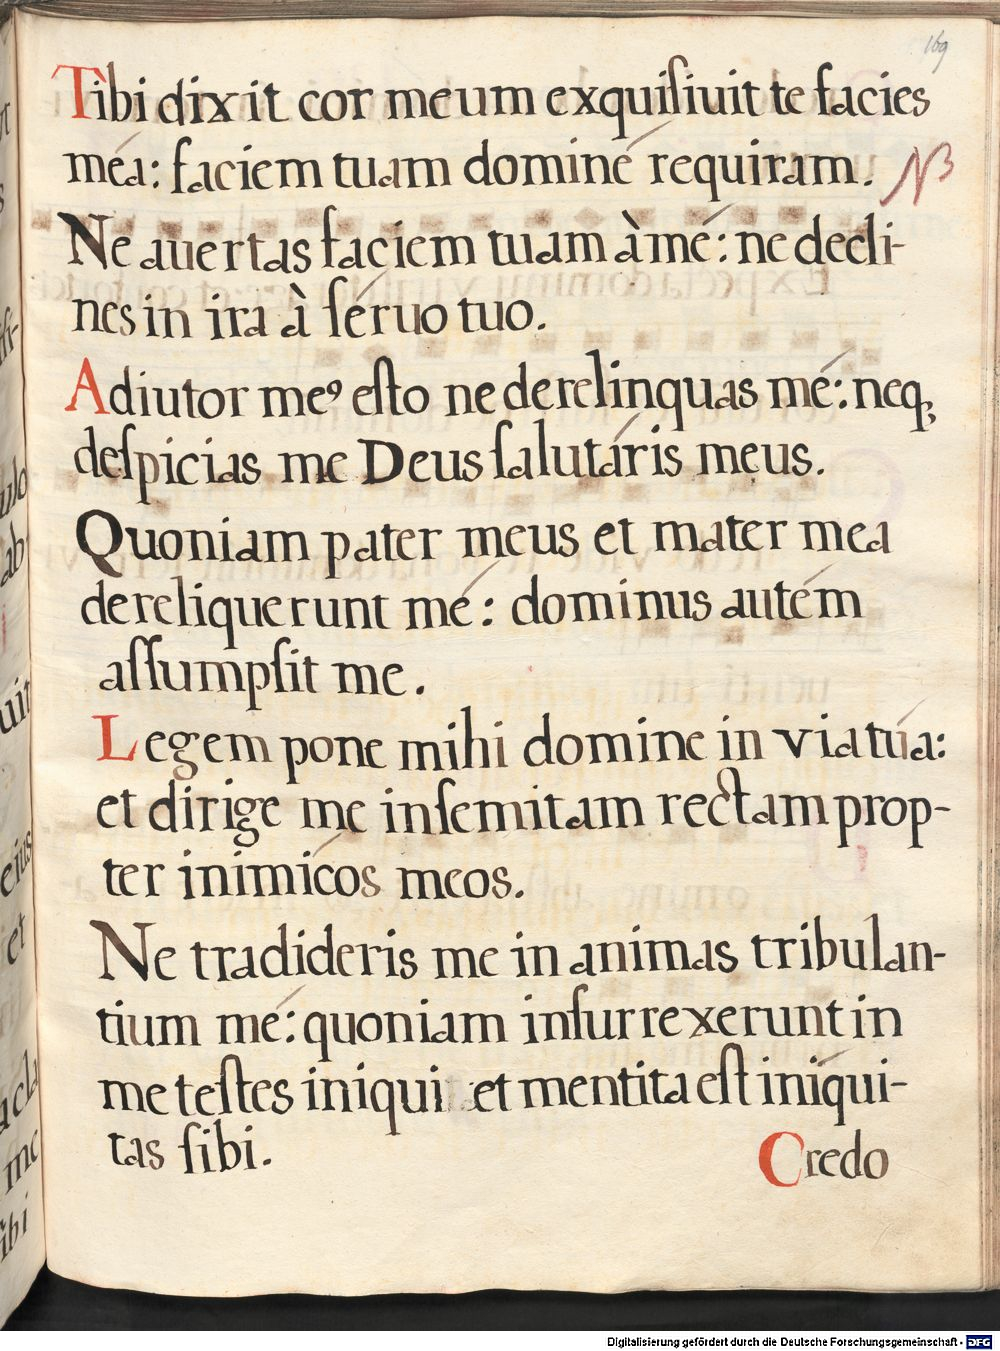 169
Tibi dixit cor meum exquiſiuit te facies
méa: faciem tuam dominé requiram.
NB
Ne auertas faciem tuam à mé: ne decli-
nes in ira à ſéruo tuo.
Adiutor meꝰ eſto ne derelinquas mé: neq;
deſpicias me Deus ſalutáris meus.
Quoniam pater meus et mater mea
dereliquerunt mé: dominus autém
aſſumpſit me.
Legem pone mihi domine in via túa:
et dirige me in ſemitam rectam prop-
ter inimícos meos.
Ne tradideris me in animas tribulan-
tium mé: quoniam inſurrexerunt in
me teſtes iniqui et mentita eſt iníqui-
tas ſibi.
Credo
Digitalisierung gefördert durch die Deutsche Forschungsgemeinschaft - DFG